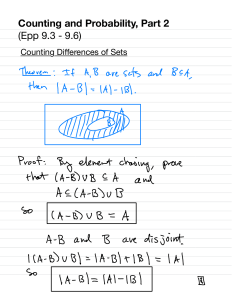 Counting and Probability, Part 2
(Epp 9.3 - 9.6)
Counting Differences of Sets
Theorem: If A, B are sets and B⊆A,
then |A-B| = |A|-|B|.
A
B
Proof: By element chasing, prove
that (A-B)∪B ⊆ A and
A ⊆ (A-B)∪B
so (A-B)∪B = A
A-B and B are disjoint.
|(A-B)∪B| = |A-B|+|B| = |A|
So |A-B| = |A|-|B|